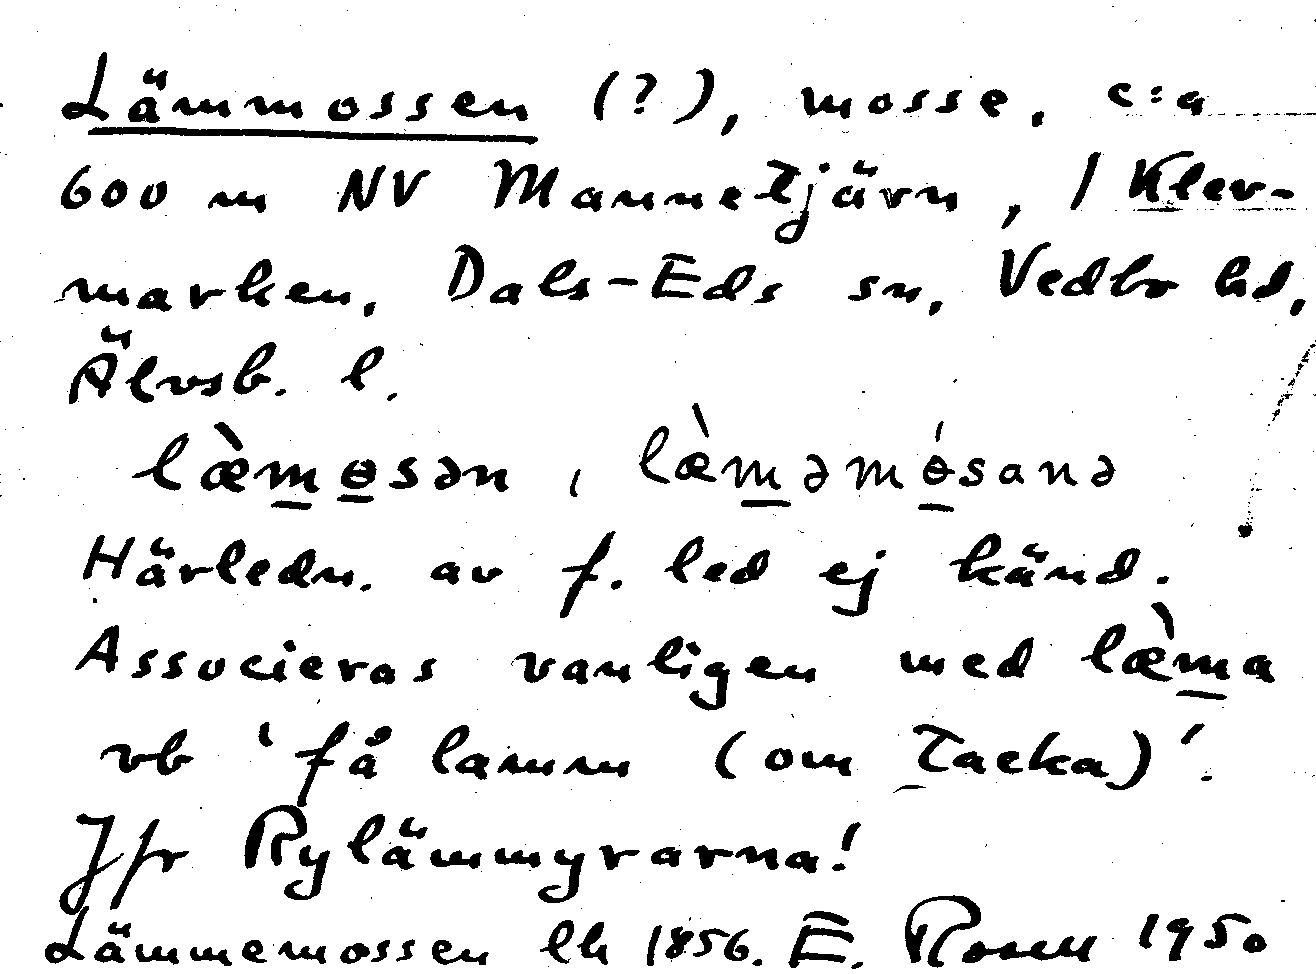 Lämmossen (?), mosse, c:a
600 m NV Mannetjärn, / Klev-
marken, Dals-Eds sn, Vedbo hd,
Älvsb. l.
læ̀m̲ɵ̲sən, læ̀m̲əmɵ̲́sanə
Härledn. av f. led ej känd.
Associeras vanligen med læ̀m̲a
vb ‘få lamm (om tacka)’.
Jfr Rylämmyrarna!
Lämmemossen lk 1856. E. Rosell 1950